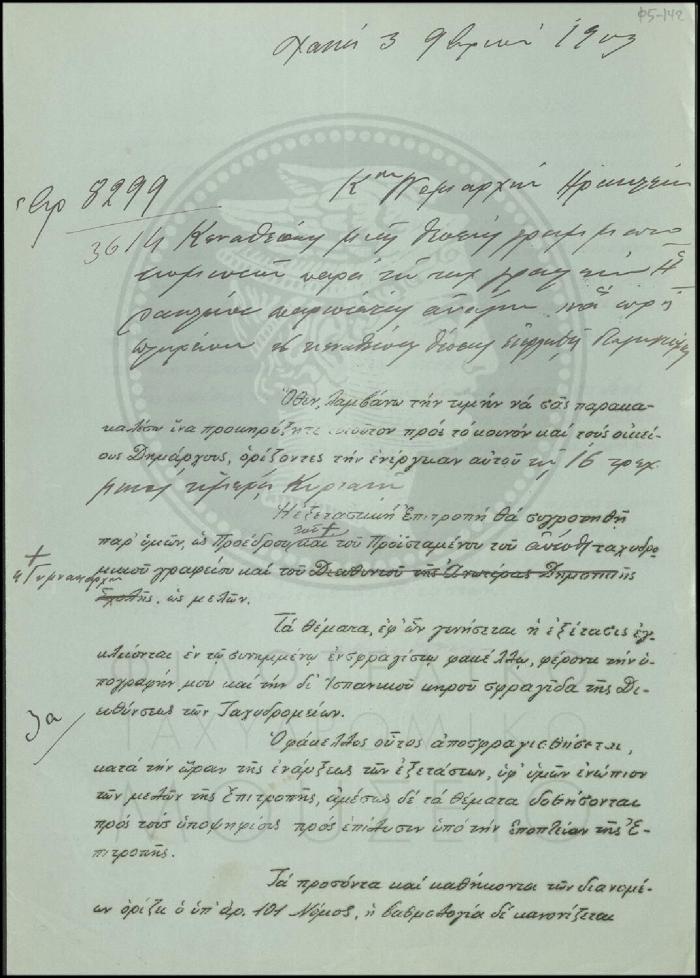 Φ5-142
Χανιά 3 9βρίου 1903
Κον Νομάρχην Ηρακλείου
Αρ 8299
3614
Κενωθείσης μιας θέσεως γραμματο
κομιστού παρά τω ταχ. γραφείω Η
ρακλείου παρίσταται ανάγκη να
θέσις
Ὅθεν, λαμβάνω τήν τιμήν νά σᾶς παρακα-
λέσω ἵνα προκηρύξητε τοῦτον πρός τό κοινόν καί τούς οἰκεί-
ους Δημάρχους, ὁρίζοντες τήν ἐνέργειαν αὐτοῦ τῇ 16 τρεχ.
μηνός ἡμέρᾳ Κυριακῇ
Ἡ ἐξεταστική Ἐπιτροπή θά συγκροτηθῇ
παρ' ὑμῶν, ὡς Προέδρου, καί τοῦ Προϊσταμένου τοῦ αὐτόθι ταχυδρο-
+
Γυμνασιάρχου
μικοῦ γραφείου καί τοῦ Διευθυντοῦ τῆς Ἀνωτέρας Δημοτικῆς
Σχολῆς, ὡς μελῶν.
Τά θέματα, ἐφ' ὧν γενήσεται ἡ ἐξέτασις ἐγ-
κλείονται ἐν τῷ συνημμένῳ ἐνσφραγίστῳ φακέλλῳ, φέροντι τήν ὑ-
πογραφήν μου καί τήν δι' Ἱσπανικοῦ κηροῦ σφραγῖδα τῆς Δι-
ευθύνσεως τῶν Ταχυδρομείων.
3α
Ὁ φάκελλος οὗτος ἀποσφραγισθήσεται,
κατά τήν ὥραν τῆς ἐνάρξεως τῶν ἐξετάσεων, ὑφ' ὑμῶν ἐνώπιον
τῶν μελῶν τῆς Ἐπιτροπῆς, ἀμέσως δέ τά θέματα δοθήσονται
πρός τούς ὑποψηφίους πρός ἐπίλυσιν ὑπό τήν ἐποπτείαν τῆς Ἐ-
πιτροπῆς.
Τά προσόντα καί καθήκοντα τῶν διανομέ-
ων ὁρίζει ὁ ὑπ' ἀρ. 101 Νόμος, ἡ βαθμολογία δέ κανονίζεται
ΦΙΛΟΤΕΛΙΚΟ
ΤΑΧΥΔΡΟΜΙΚΟ
ΜΟΥΣΕΙΟ